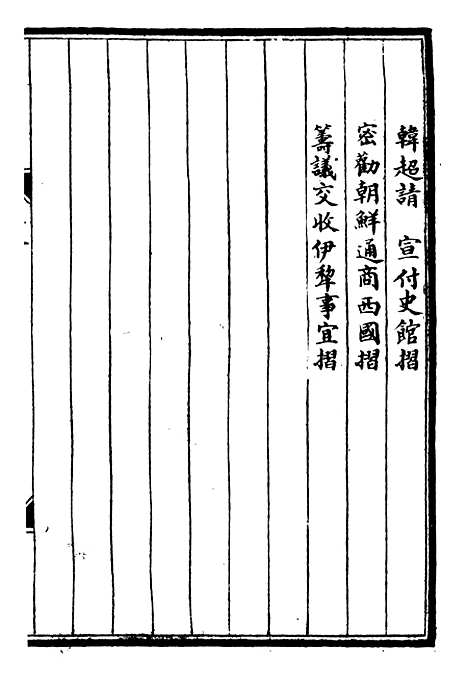 韓超請　宣付史館摺
密勸朝鮮通商西國摺
籌議交收伊犂事宜摺